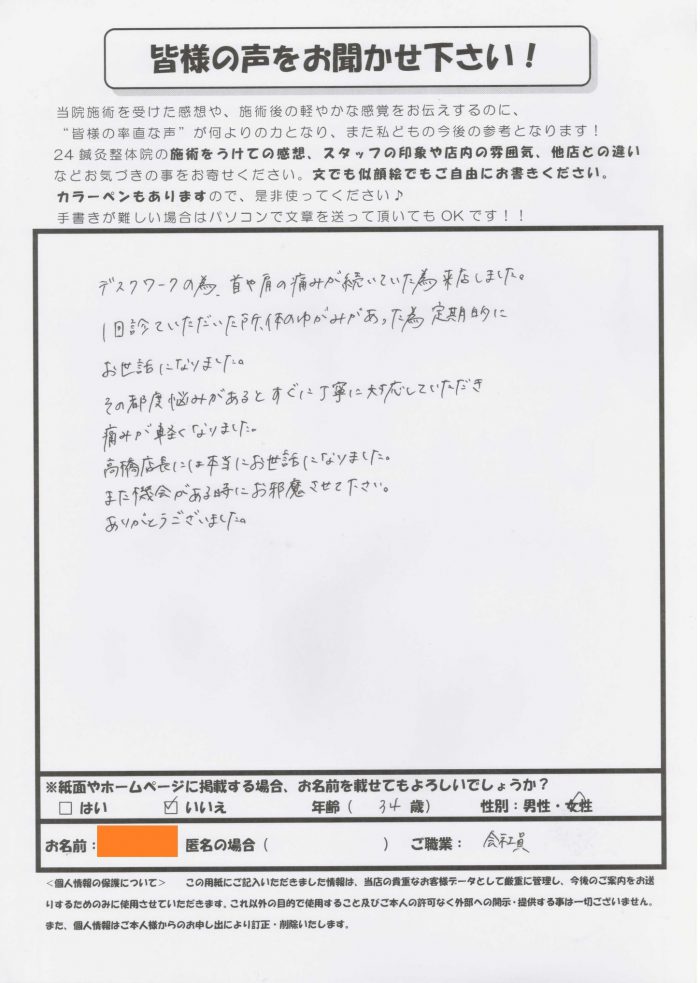 皆様の声をお聞かせ下さい！
当院施術を受けた感想や、施術後の軽やかな感覚をお伝えするのに、
“皆様の率直な声”が何よりの力となり、また私どもの今後の参考となります！
24鍼灸整体院の施術をうけての感想、スタッフの印象や店内の雰囲気、他店との違い
などお気づきの事をお寄せください。文でも似顔絵でもご自由にお書きください。
カラーペンもありますので、是非使ってください♪
手書きが難しい場合はパソコンで文章を送って頂いてもOKです！！
デスクワークの為、首や肩の痛みが続いていた為来店しました。
1回診ていただいた所、体のゆがみがあった為定期的に
お世話になりました。
その都度悩みがあるとすぐに丁寧に対応していただき
痛みが軽くなりました。
高橋店長には本当にお世話になりました。
また機会がある時にお邪魔させて下さい。
ありがとうございました。
※紙面やホームページに掲載する場合、お名前を載せてもよろしいでしょうか？
□ はい ☑ いいえ 年齢（ 34 歳） 性別：男性・女性
お名前： 匿名の場合（ ） ご職業： 会社員
<個人情報の保護について> この用紙にご記入いただきました情報は、当店の貴重なお客様データとして厳重に管理し、今後のご案内をお送
りするためのみに使用させていただきます。これ以外の目的で使用すること及びご本人の許可なく外部への開示・提供する事は一切ございません。
また、個人情報はご本人様からのお申し出により訂正・削除いたします。